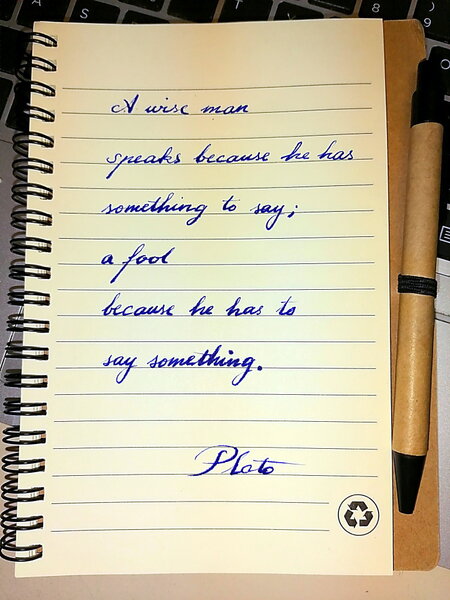 A wise man
speaks because he has
something to say;
a fool
because he has to
say something.
Plato